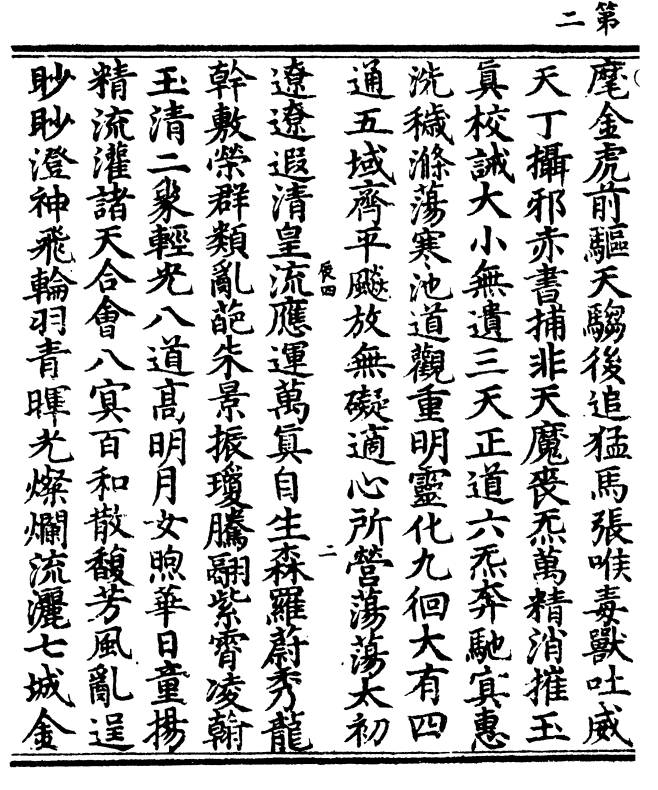 第二
麾金虎前驅天騶後追猛馬張喉毒獸吐威
天丁攝邪赤書捕非天魔喪炁萬精消摧玉
眞校誡大小無遺三天正道六炁奔馳寘惠
洗穢滌蕩寒池道觀重明靈化九徊大有四
通五域齊平飈放無礙適心所營蕩蕩太初
辰四
二
遼遼遐清皇流應運萬眞自生森羅蔚秀龍
幹敷榮群類亂葩朱景振瓊騰翮紫霄凌翰
玉清二象輕光八道高明月女煦華日童揚
精流灌諸天合會八㝠百和散馥芳風亂逞
眇眇澄神飛輪羽青暉光燦爛流灑七城金